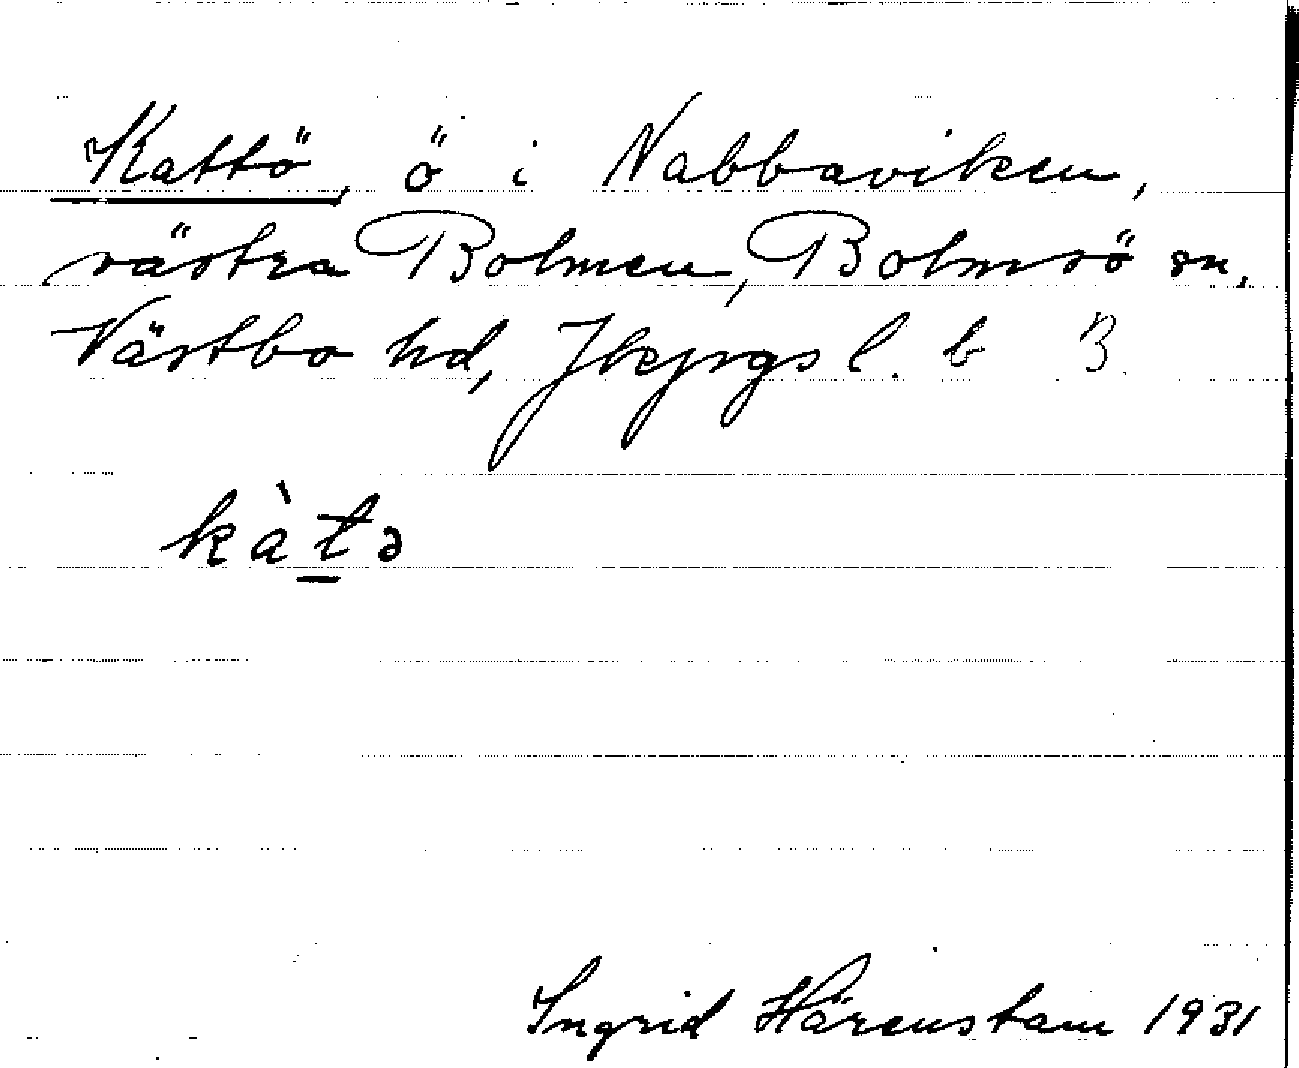 Kattö, ö i Nabbaviken,
västra Bolmen, Bolmsö sn.
Västbo hd, Jkpgs l. b B
kàtə
Ingrid Härenstam 1931